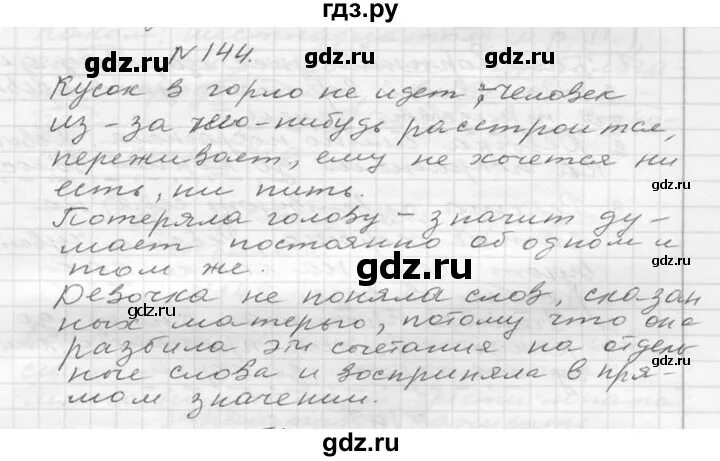 гдз.ру
gdz.ru gdz.ru
№ 144.
gdz.ru
Кусок в горло не идет, человек
из-за чего-нибудь расстроится,
переживает, ему не хочется ни
есть, ни пить.
gdz.ru
Потеряла голову - значит ду-
мает постоянно об одном и
том же.
gdz.ru
Девочка не поняла слов, сказан
gdz.ru gdz.ru
ных матерью, потому что она
разбила эти сочетания на отдель
ные слова и восприняла в пря-
мом значении.
gdz.ru
gdz.ru